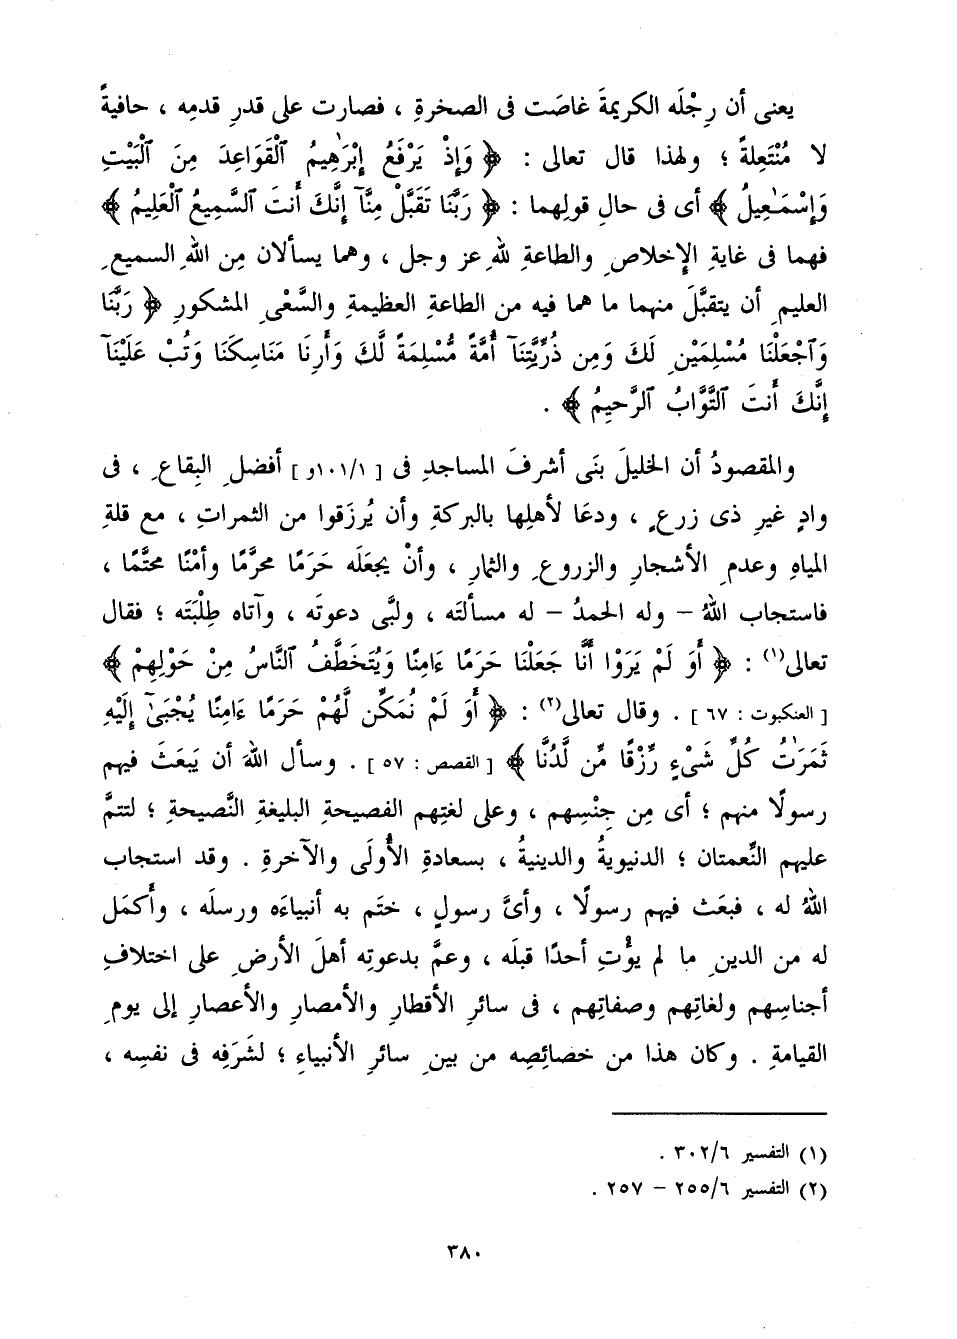 يعنى أن رِجْلَه الكريمةَ غاصَت فى الصخرةِ ، فصارت على قدرِ قدمِه ، حافيةً
لا مُنْتَعِلةً ؛ ولهذا قال تعالى : ﴿ وَإِذْ يَرْفَعُ إِبْرَٰهِيمُ ٱلْقَوَاعِدَ مِنَ ٱلْبَيْتِ
وَإِسْمَٰعِيلُ ﴾ أى فى حالِ قولِهما : ﴿ رَبَّنَا تَقَبَّلْ مِنَّآ إِنَّكَ أَنتَ ٱلسَّمِيعُ ٱلْعَلِيمُ ﴾
فهما فى غايةِ الإِخلاصِ والطاعةِ للهِ عز وجل ، وهما يسألان مِن اللهِ السميعِ
العليمِ أن يتقبَّلَ منهما ما هما فيه من الطاعةِ العظيمةِ والسَّعْىِ المشكورِ ﴿ رَبَّنَا
وَٱجْعَلْنَا مُسْلِمَيْنِ لَكَ وَمِن ذُرِّيَّتِنَآ أُمَّةً مُّسْلِمَةً لَّكَ وَأَرِنَا مَنَاسِكَنَا وَتُبْ عَلَيْنَآ
إِنَّكَ أَنتَ ٱلتَّوَّابُ ٱلرَّحِيمُ ﴾ .
والمقصودُ أن الخليلَ بنَى أشرفَ المساجدِ فى [ ١٠١/١و ] أفضلِ البِقاعِ ، فى
وادٍ غيرِ ذى زرعٍ ، ودعَا لأهلِها بالبركةِ وأن يُرزَقوا من الثمراتِ ، مع قلةِ
المياهِ وعدمِ الأشجارِ والزروعِ والثمارِ ، وأنْ يجعَلَه حَرَمًا محرَّمًا وأمْنًا محتَّمًا ،
فاستجاب اللهُ – وله الحمدُ – له مسألتَه ، ولبَّى دعوتَه ، وآتاه طِلْبَتَه ؛ فقال
تعالى(١) : ﴿ أَوَ لَمْ يَرَوْا أَنَّا جَعَلْنَا حَرَمًا ءَامِنًا وَيُتَخَطَّفُ ٱلنَّاسُ مِنْ حَوْلِهِمْ ﴾
[ العنكبوت : ٦٧ ] . وقال تعالى(٢) : ﴿ أَوَ لَمْ نُمَكِّن لَّهُمْ حَرَمًا ءَامِنًا يُجْبَىٰٓ إِلَيْهِ
ثَمَرَٰتُ كُلِّ شَىْءٍ رِّزْقًا مِّن لَّدُنَّا ﴾ [ القصص : ٥٧ ] . وسأل اللهَ أن يَبعَثَ فيهم
رسولًا منهم ؛ أى مِن جِنْسِهم ، وعلى لغتِهم الفصيحةِ البليغةِ النَّصيحةِ ؛ لتتمَّ
عليهم النِّعمتان ؛ الدنيويةُ والدينيةُ ، بسعادةِ الأُولَى والآخرةِ . وقد استجاب
اللهُ له ، فبعَث فيهم رسولًا ، وأىَّ رسولٍ ، ختَم به أنبياءَه ورسلَه ، وأكمَل
له من الدينِ ما لم يؤْتِ أحدًا قبلَه ، وعمَّ بدعوتِه أهلَ الأرضِ على اختلافِ
أجناسِهم ولغاتِهم وصفاتِهم ، فى سائرِ الأقطارِ والأمصارِ والأعصارِ إلى يومِ
القيامةِ . وكان هذا من خصائصِه من بينِ سائرِ الأنبياءِ ؛ لشَرَفِه فى نفسِه ،
(١) التفسير ٣٠٢/٦ .
(٢) التفسير ٢٥٥/٦ – ٢٥٧ .
٣٨٠